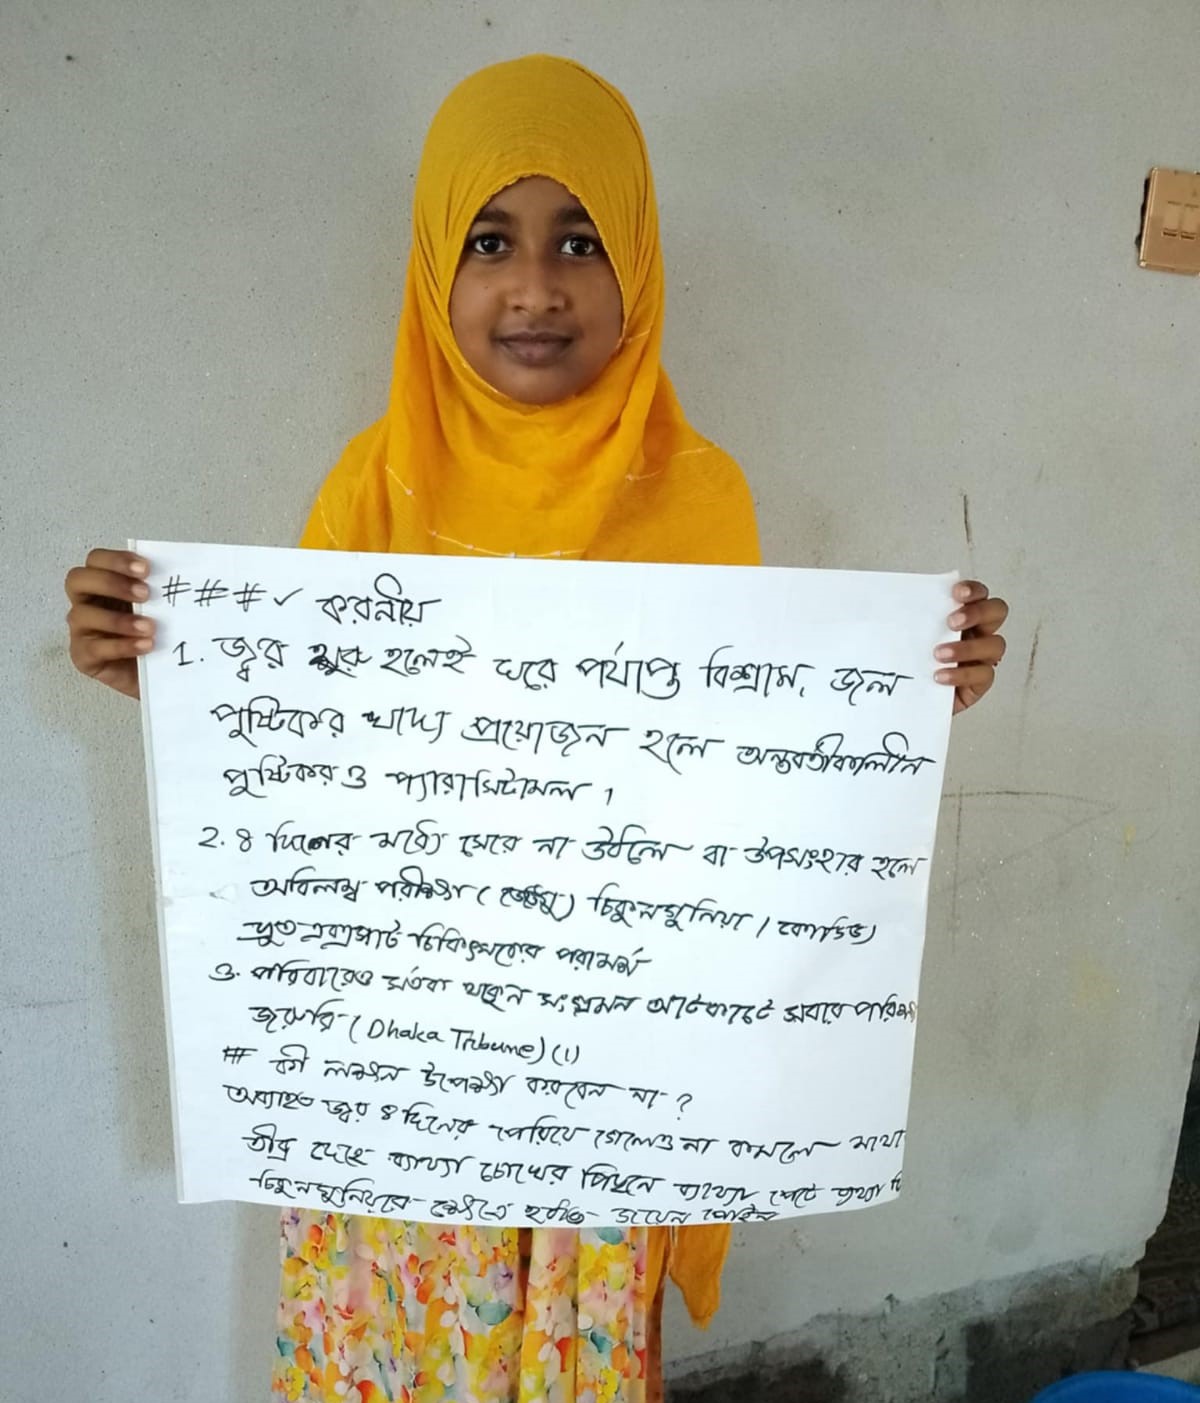 ###✓ করনীয়
1. জ্বর শুরু হলেই ঘরে পর্যাপ্ত বিশ্রাম, জল
পুষ্টিকর খাদ্য প্রয়োজন হলে অন্তবর্তীকালীন
পুষ্টিকর ও প্যারাসিটামল ।
2. ৪ দিনের মধ্যে সেরে না উঠলে বা উপসংহার হলে
অবিলম্ব পরীক্ষা (ডেঙ্গু) চিকুনগুনিয়া / কোভিড)
দ্রুত চিকিৎসকের পরামর্শ
৩. পরিবারেও সর্তক থাকুন সংক্রমন আটকাতে সবার
জরুরি (Dhaka Tribune) (1)
## কী লক্ষন উপেক্ষা করবেন না ?
অব্যাহত জ্বর ৪ দিনের পেরিয়ে গেলেও না কমলে মাথা
তীব্র দেহে ব্যাথ্যা চোখের পিছনে ব্যথ্যা পেটে
চিকুনগুনিয়ার ক্ষেত্রে জয়েন্ট পেইন